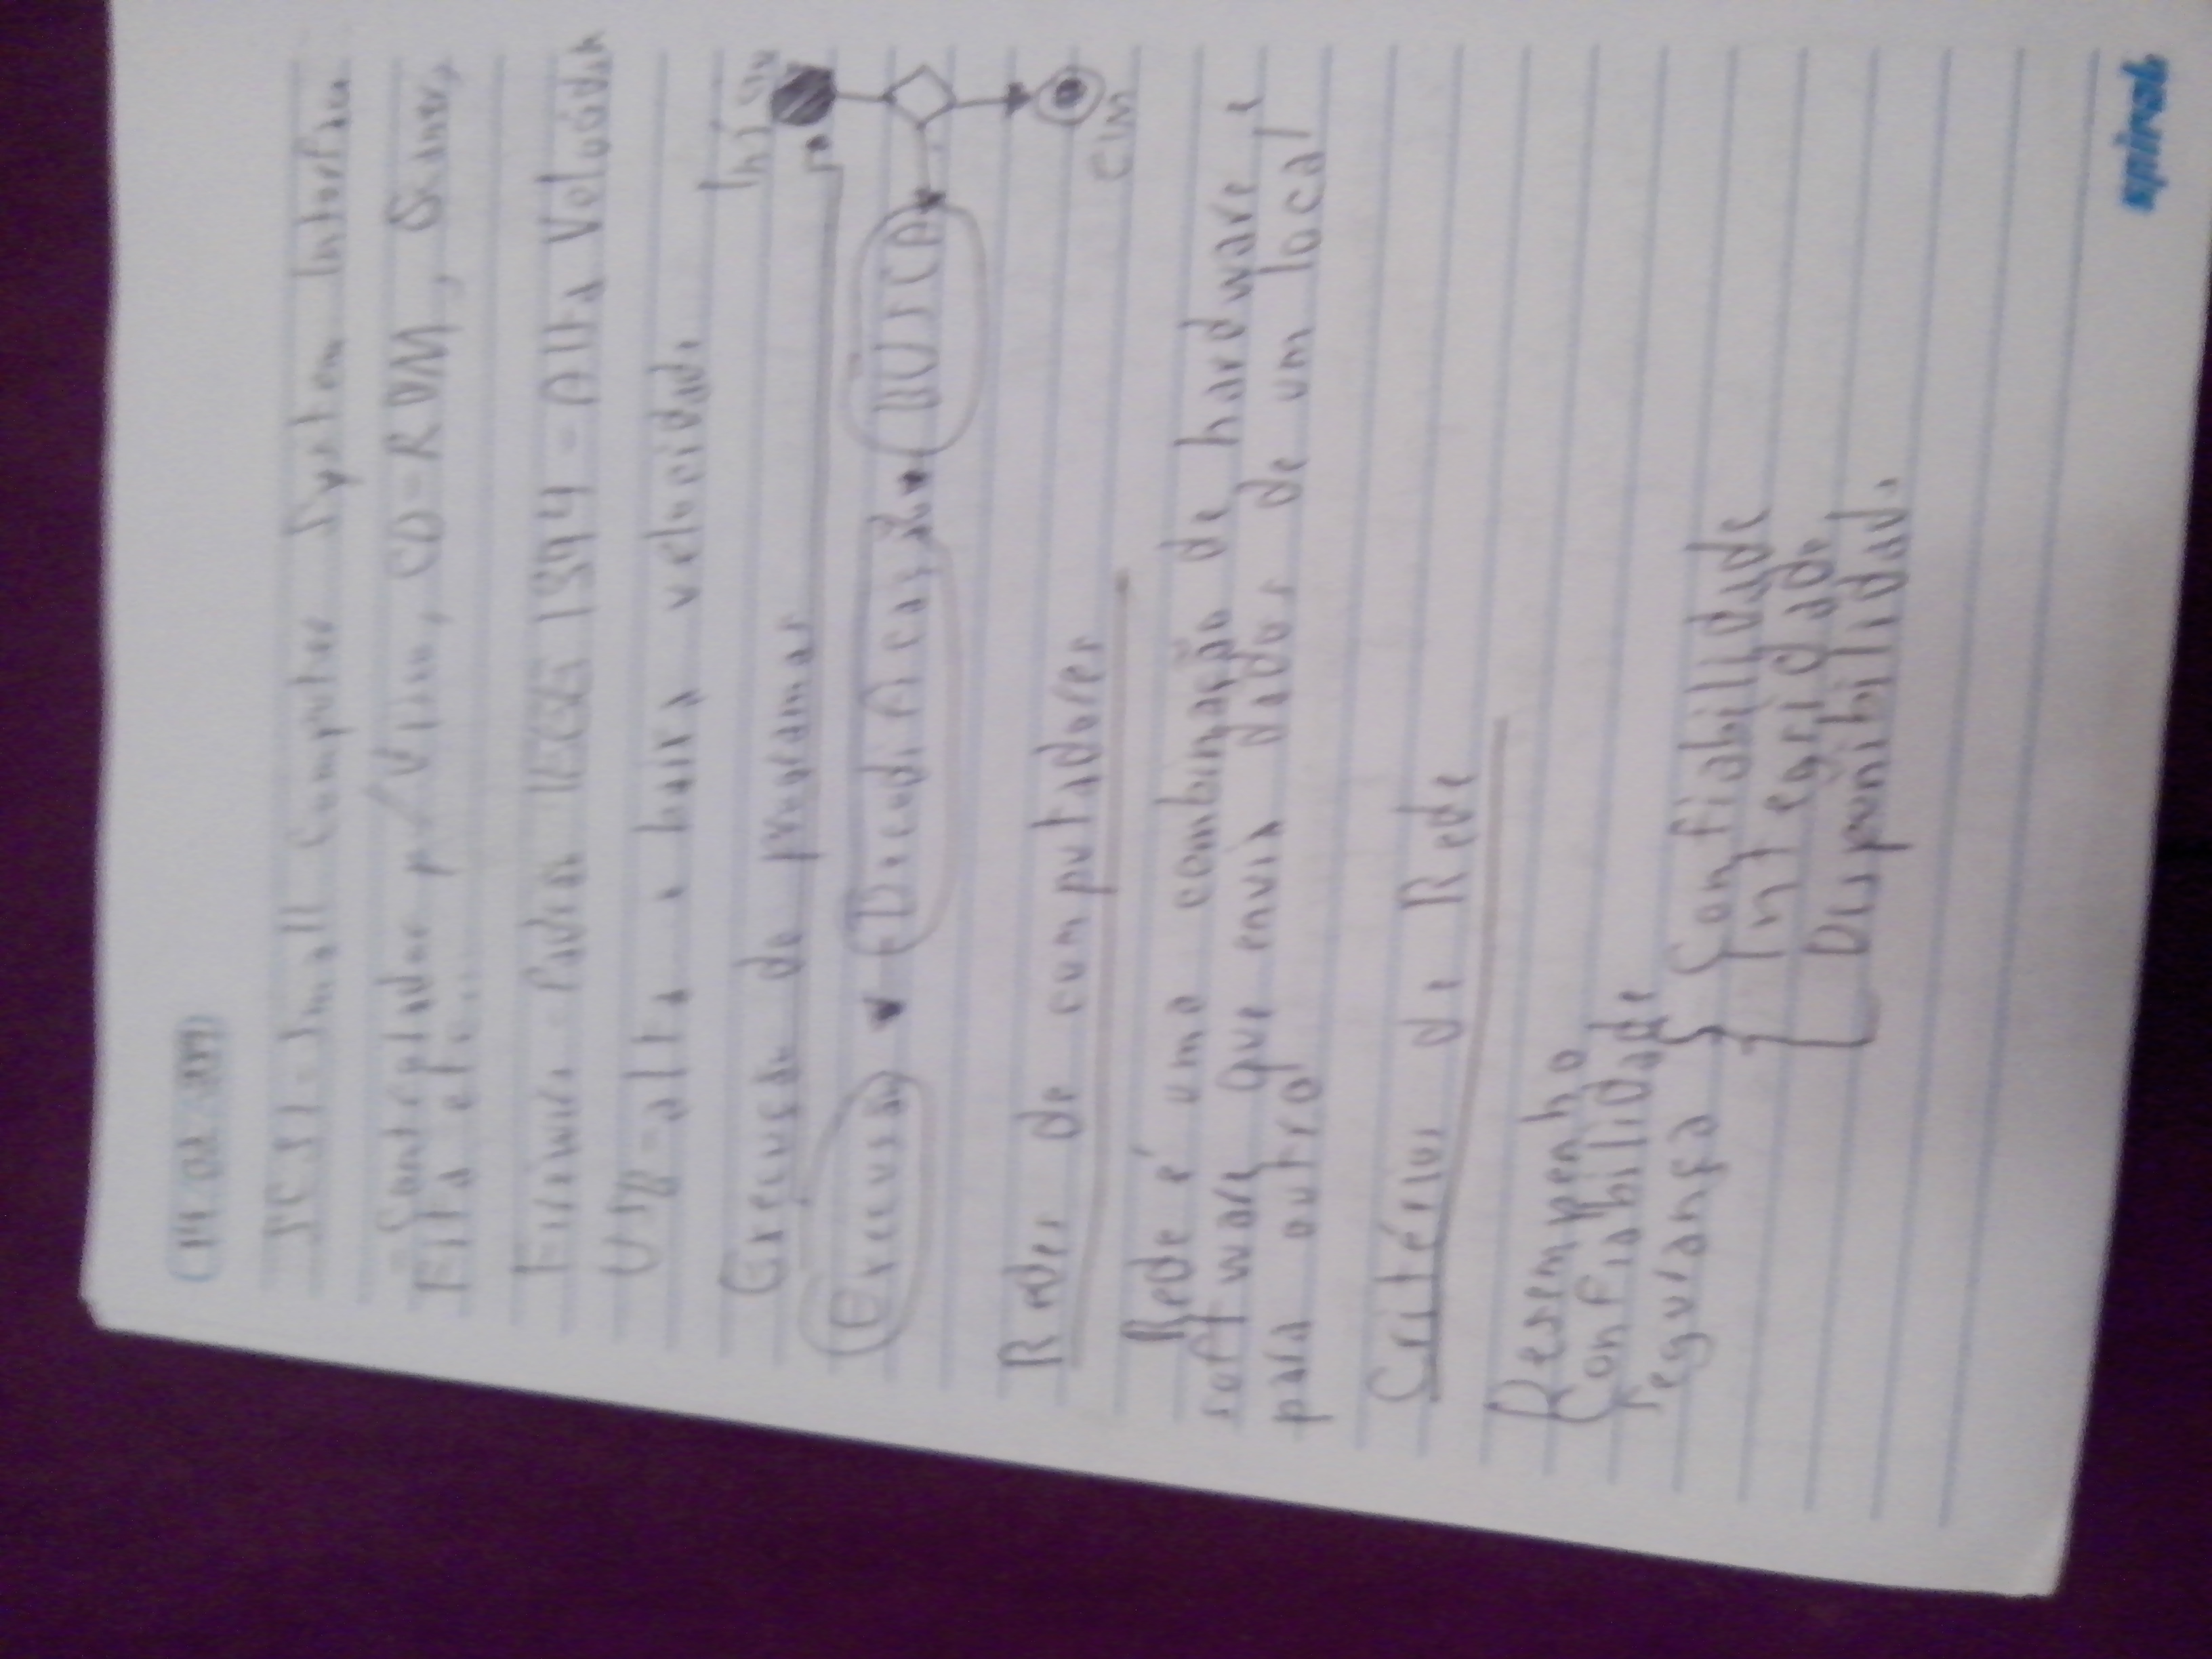 14 02
SCSI - Small Computer System Interface
- Controlador p/ CD-ROM, Scaner,
Fita etc...
Firewire - Padrão IEEE 1394 - Alta Velocidade
USB - alta e baixa velocidade
Início
Execusão de programas
Execusão Decodificação BUSCA
FIM
Redes de computadores
Rede é uma combinação de hardware e
software que envia dados de um local
para outro
Critérios de Rede
Desempenho
Confiabilidade
Segurança { Confiabilidade
Integridade
Disponibilidade
spiral